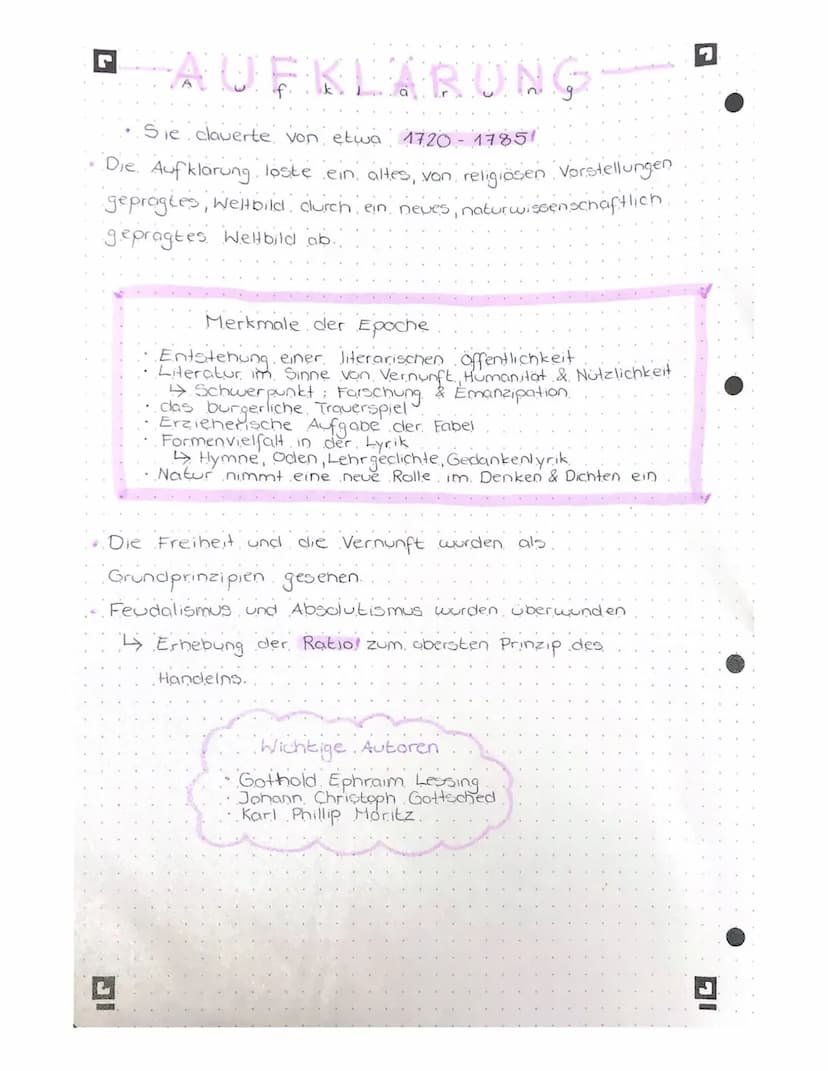 AUFKLÄRUNG
Aufklärung
• Sie dauerte von etwa 1720-1785!
• Die Aufklärung löste ein altes, von religiösen Vorstellungen
geprägtes, Weltbild durch ein neues, naturwissenschaftlich
geprägtes Weltbild ab.
Merkmale der Epoche
• Entstehung einer literarischen Öffentlichkeit
• Literatur im Sinne von Vernunft, Humanität & Nützlichkeit
↳ Schwerpunkt: Forschung & Emanzipation
• das bürgerliche Trauerspiel
• Erzieherische Aufgabe der Fabel
• Formenvielfalt in der Lyrik
↳ Hymne, Oden, Lehrgedichte, Gedankenlyrik
• Natur nimmt eine neue Rolle im Denken & Dichten ein
• Die Freiheit und die Vernunft wurden als
Grundprinzipien gesehen.
• Feudalismus und Absolutismus wurden überwunden
↳ Erhebung der Ratio! zum obersten Prinzip des
Handelns.
Wichtige Autoren
• Gothold Ephraim Lessing
• Johann Christoph Gottsched
• Karl Phillip Moritz